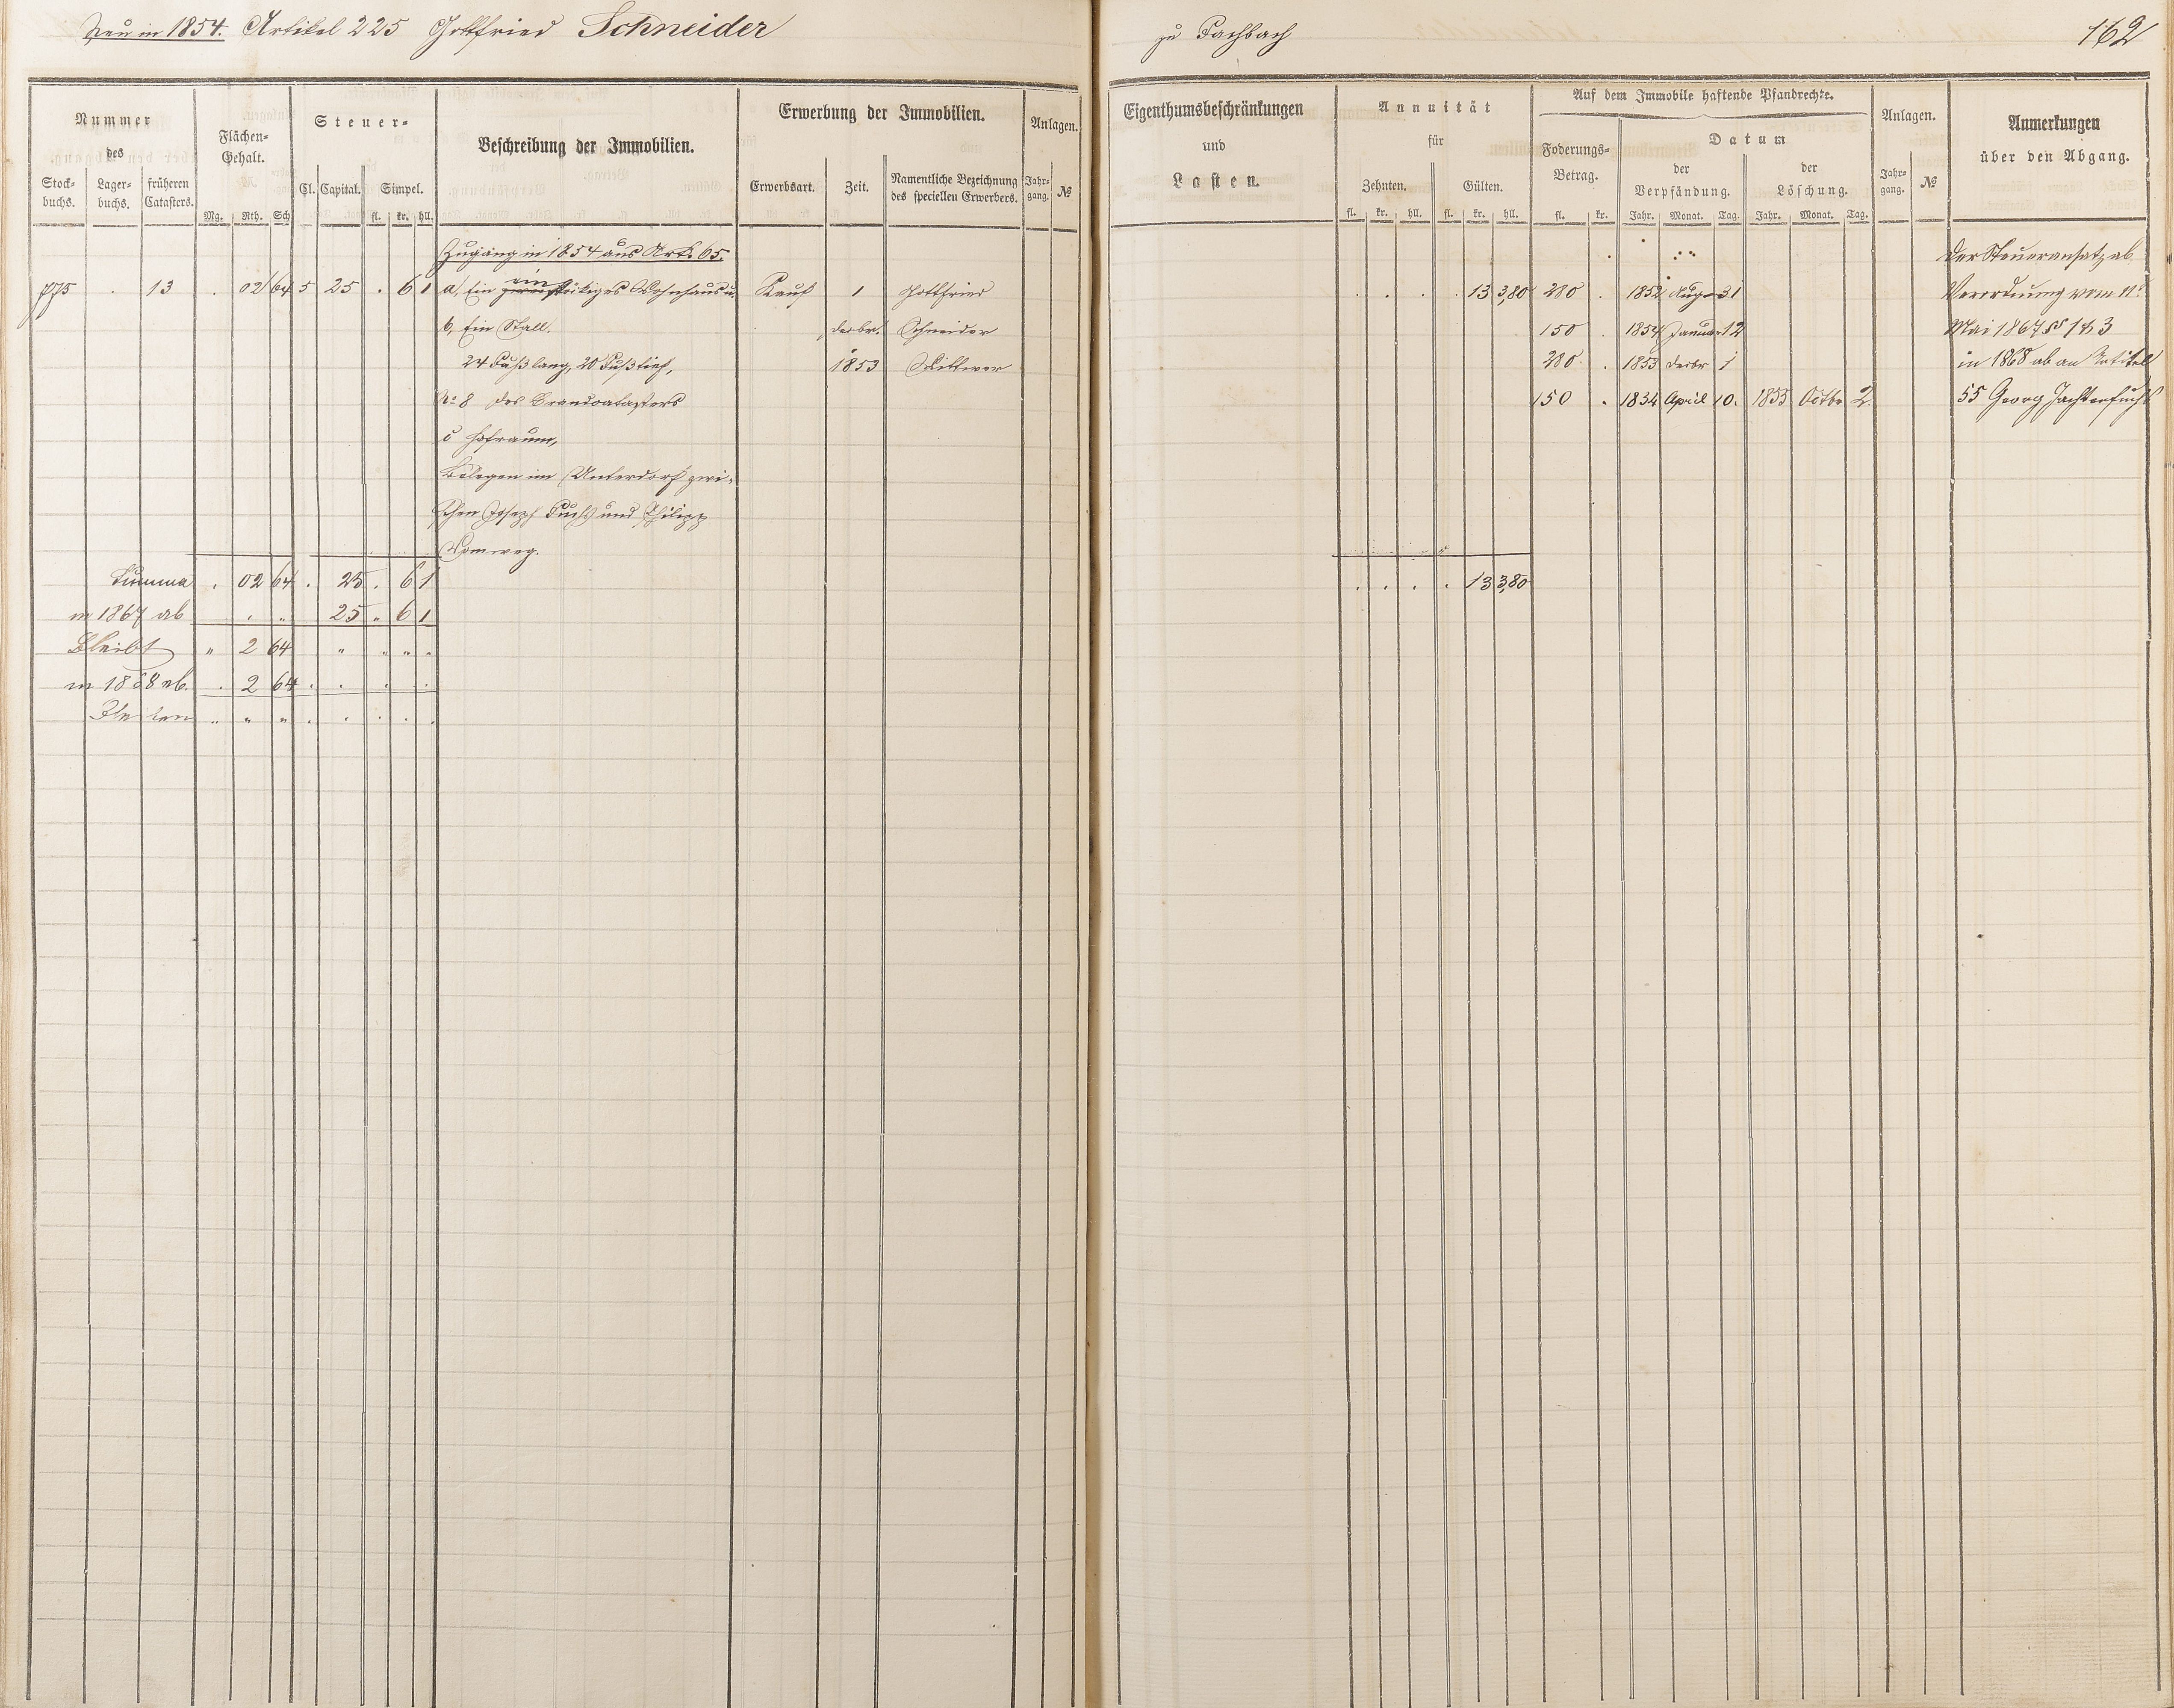 Neu in 1854. Artikel 225 Gottfried Schneider
zu Fachbach
162
Nummer
des
Stock-
buchs.
Lager-
buchs.
früheren
Catasters.
Flächen-
Gehalt.
Mg. Rth. Sch
Steuer-
Cl. Capital. Simpel.
fl. kr. hll.
Beschreibung der Immobilien.
Erwerbung der Immobilien.
Erwerbsart. Zeit.
Namentliche Bezeichnung
des speciellen Erwerbers.
Anlagen.
Jahr-
gang. №
Eigenthumsbeschränkungen
und
Lasten.
Annuität
für
Zehnten. Gülten.
fl. kr. hll. fl. kr. hll.
Auf dem Immobile haftende Pfandrechte.
Foderungs-
Betrag.
fl. kr.
Datum
der
Verpfändung.
Jahr. Monat. Tag.
der
Löschung.
Jahr. Monat. Tag.
Anlagen.
Jahr-
gang. №
Anmerkungen
über den Abgang.
Zugang in 1854 aus Art. 65.
775 . 13 . 02 64 5 25 . 6 1 a, Ein zweistöckiges Wohnhaus u. Kauf 1 Gottfried
ein
b, Ein Stall. Decbr. Schneider
24 Fuß lang, 20 Fuß tief, 1853 Wittwer
No 8 des Brandcatasters
c Hofraum,
Belegen im Unterdorf zwi-
schen Joseph Fuchs und Philipp
Summa . 02 64 . 25 . 6 1
in 1867 ab . „ 25 „ 6 1
Bleibt „ 2 64 „ „ „ „
in 1868 ab. . 2 64 . . . .
. . . . 13 3,80 280 . 1852 Aug 31
150 . 1854 Januar 12
280 . 1853 Decbr 1
150 . 1834 April 10. 1855 Octbr 2.
. . . . 13 3,80
Der Steueransatz ab
Verordnung vom 11t
Mai 1867 §§ 1 & 3
in 1868 ab an Artikel
55 Georg